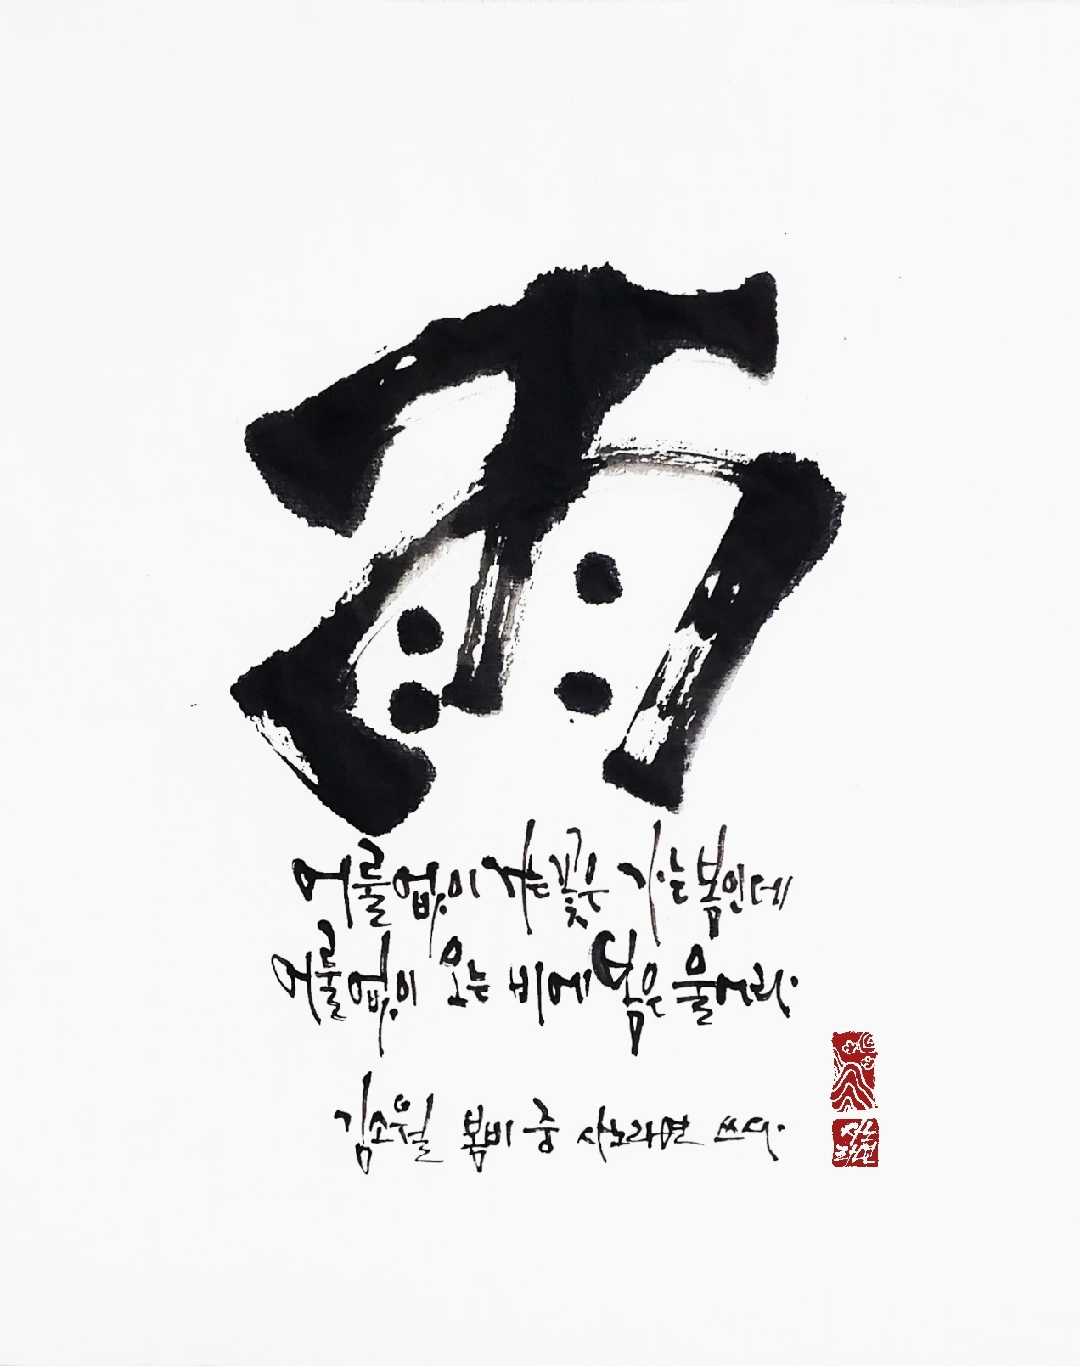 雨
어룰없이 지는 꽃은 가는 봄인데
어룰없이 오는 비에 봄은 울어라.
김소월 봄비 중 사노라면 쓰다.